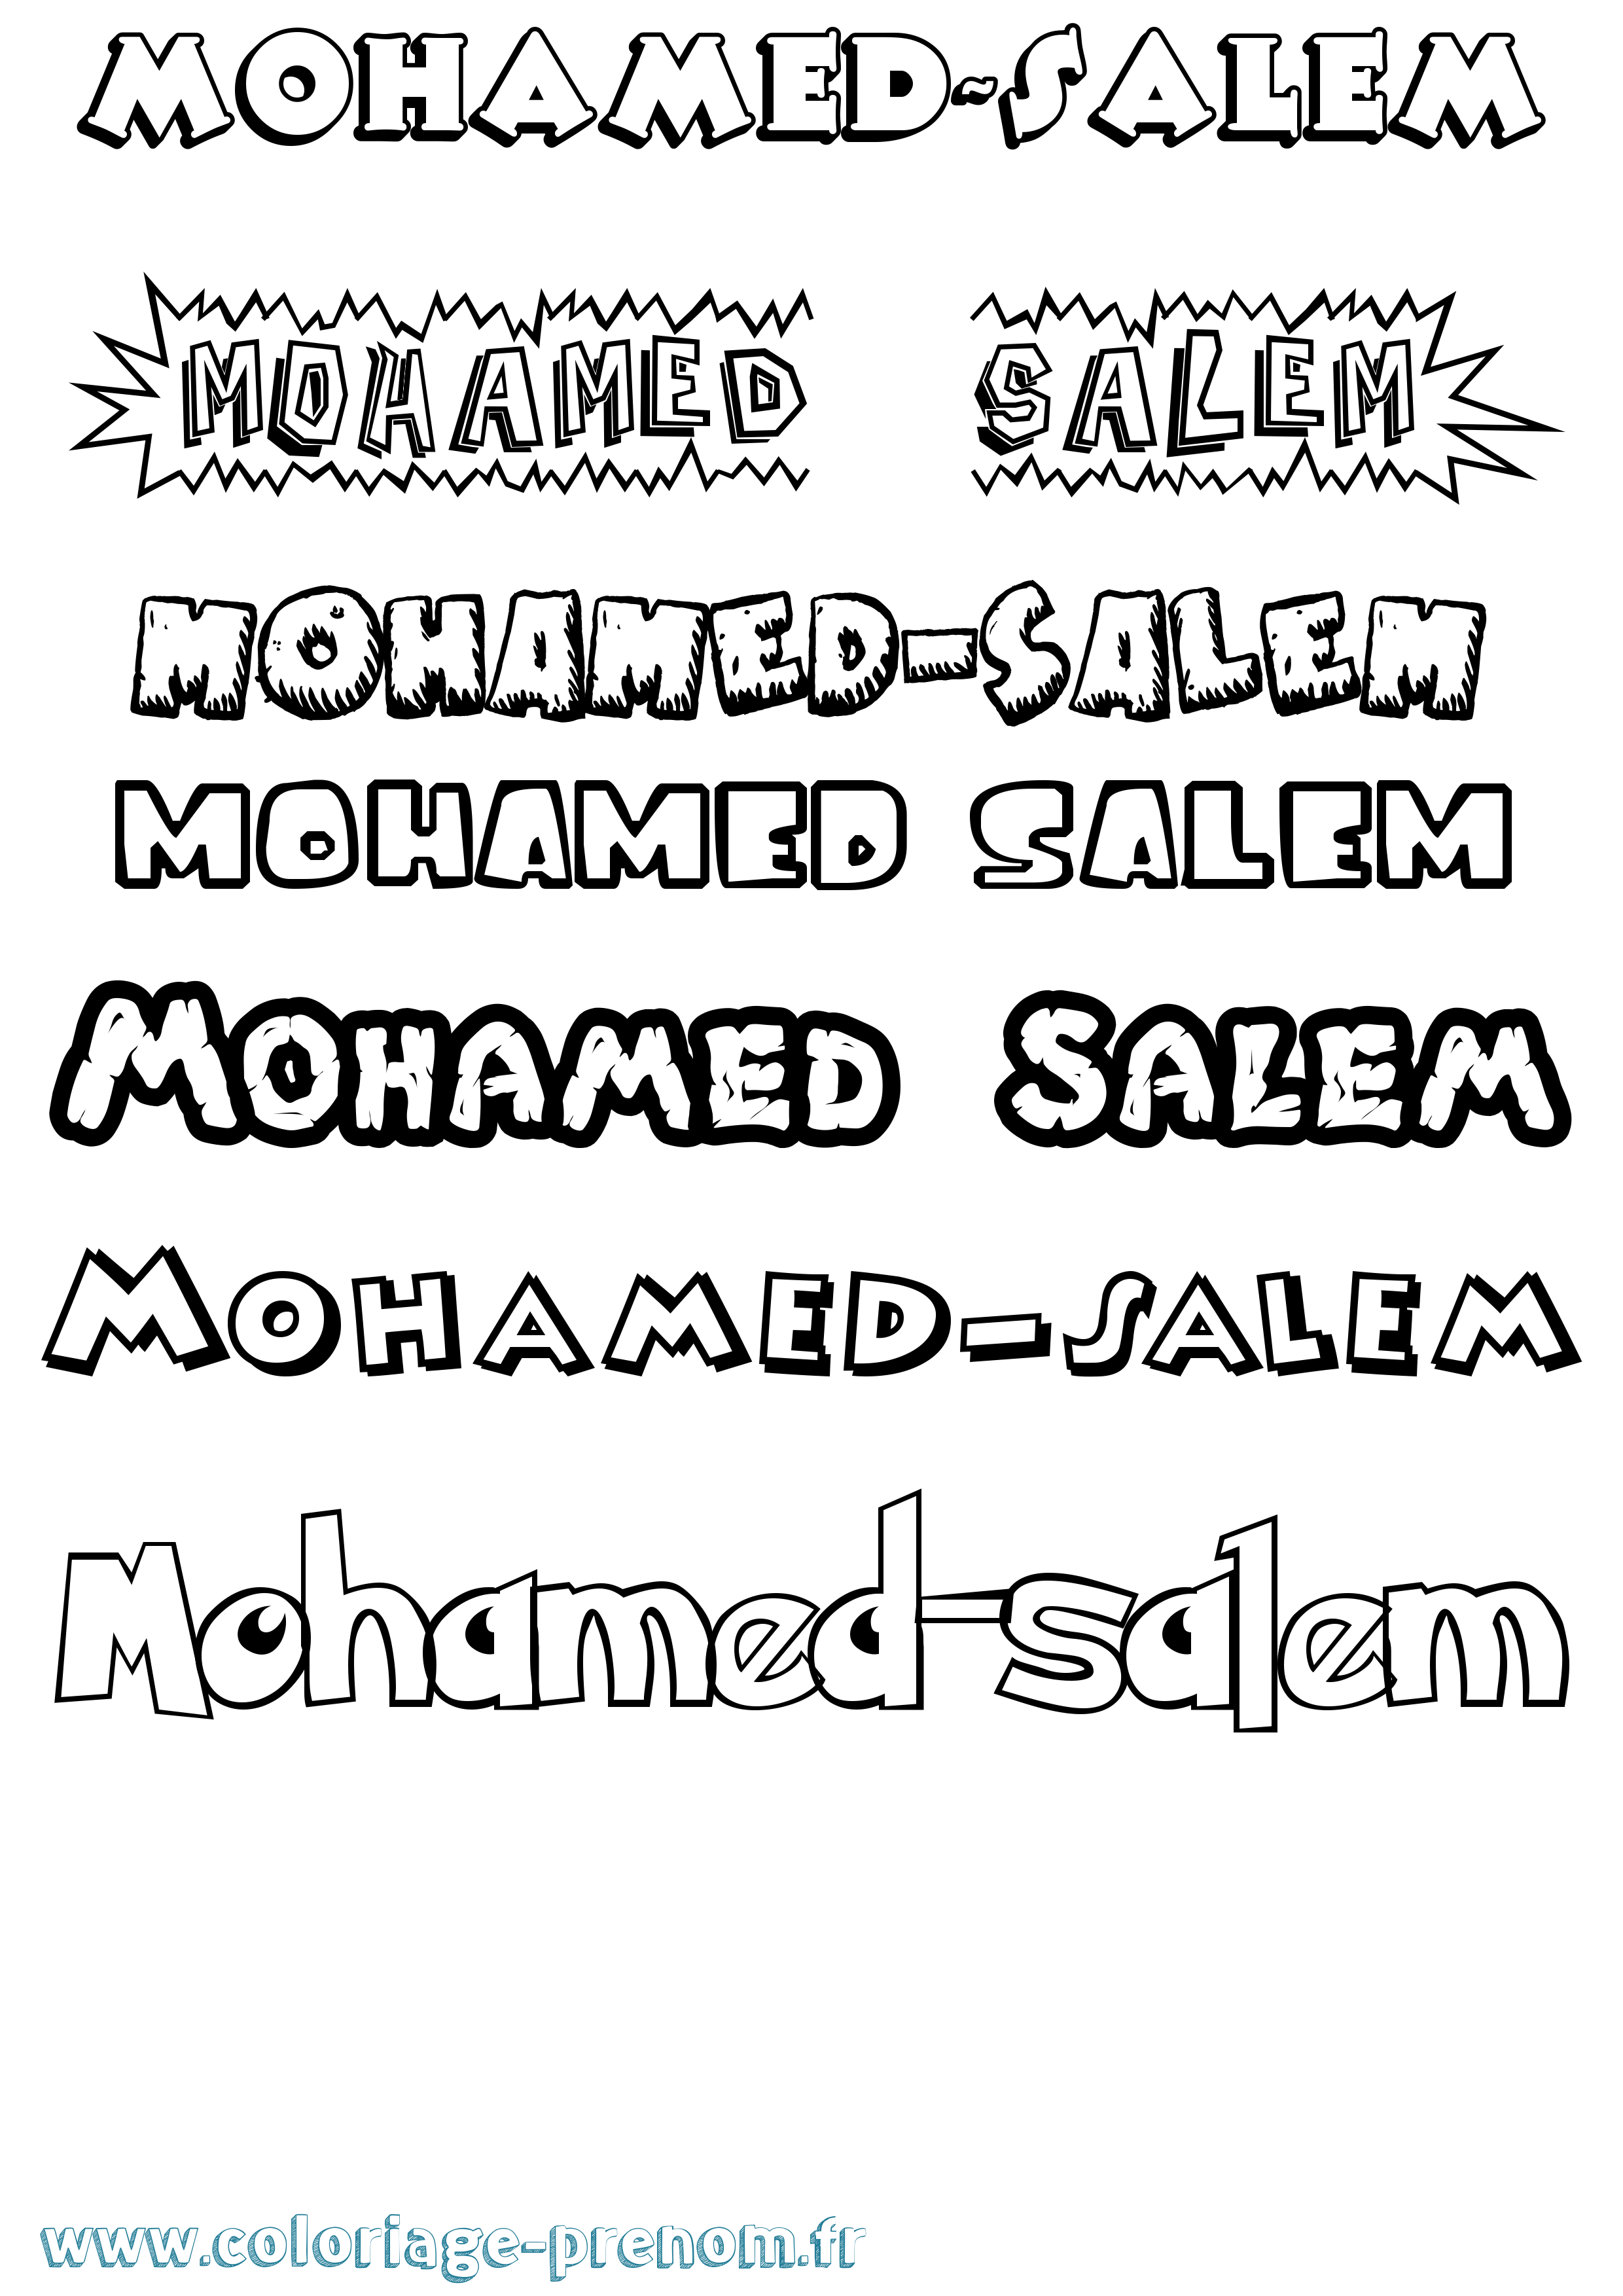 MOHAMED-SALEM
MOHAMED SALEM
MOHAMED-SALEM
MOHAMED SALEM
MOHAMED SALEM
MOHAMED-SALEM
Mohamed-salem
www.coloriage-prenom.fr